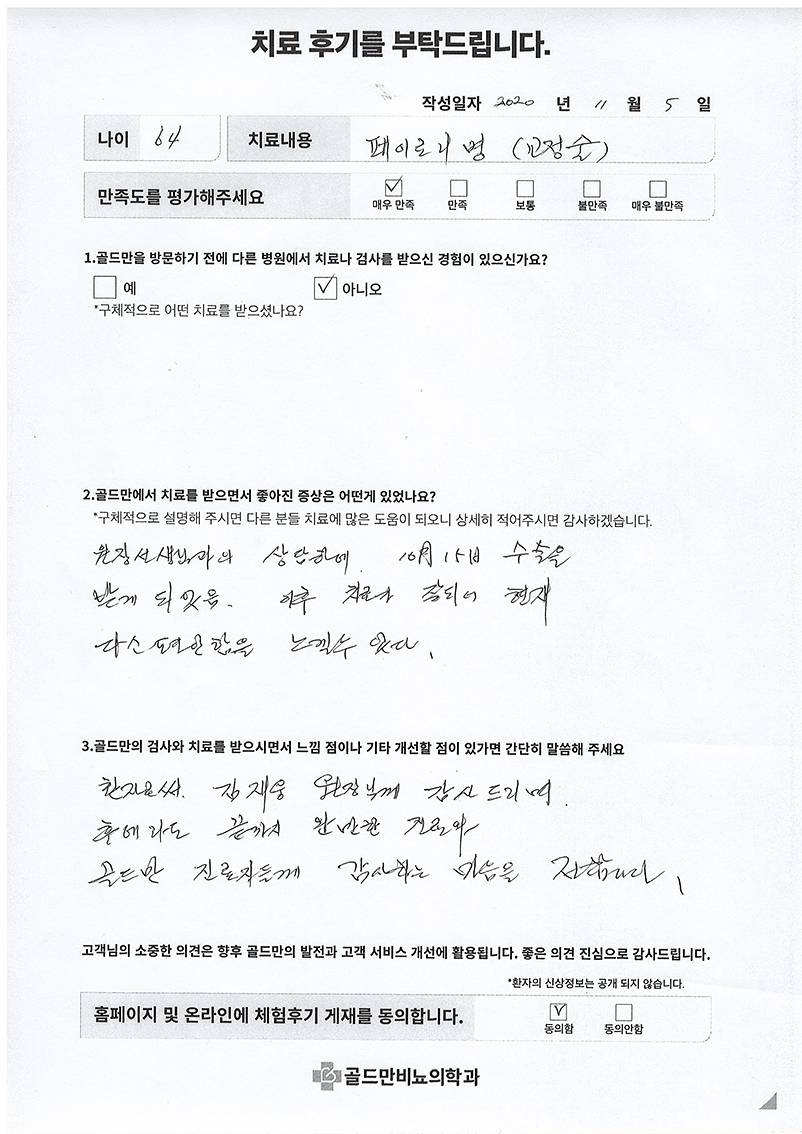 치료 후기를 부탁드립니다.
작성일자 2020 년 11 월 5 일
나이 64 치료내용 페이로니병 (교정술)
만족도를 평가해주세요 매우 만족 만족 보통 불만족 매우 불만족
1.골드만을 방문하기 전에 다른 병원에서 치료나 검사를 받으신 경험이 있으신가요?
예 아니오
*구체적으로 어떤 치료를 받으셨나요?
2.골드만에서 치료를 받으면서 좋아진 증상은 어떤게 있었나요?
*구체적으로 설명해 주시면 다른 분들 치료에 많은 도움이 되오니 상세히 적어주시면 감사하겠습니다.
원장선생님과의 상담하에 10月 15日 수술을
받게 되었음. 이후 치료가 잘되어 현재
다소 편안함을 느낄수 있다.
3.골드만의 검사와 치료를 받으시면서 느낌 점이나 기타 개선할 점이 있가면 간단히 말씀해 주세요
환자로써. 김재웅 원장님께 감사드리며.
후에라도 끝까지 완만한 진료와
골드만 진료자들께 감사하는 마음을 전합니다.
고객님의 소중한 의견은 향후 골드만의 발전과 고객 서비스 개선에 활용됩니다. 좋은 의견 진심으로 감사드립니다.
*환자의 신상정보는 공개 되지 않습니다.
홈페이지 및 온라인에 체험후기 게재를 동의합니다. 동의함 동의안함
골드만비뇨의학과